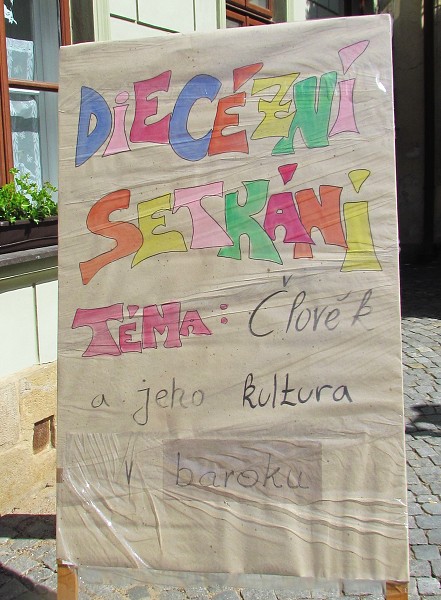 DIECÉZNÍ
SETKÁNÍ
TÉMA: Člověk
a jeho kultura
v baroku